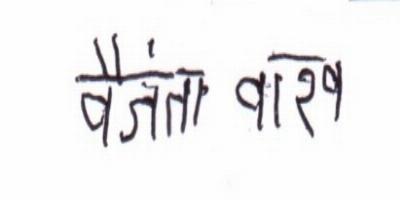 वैजंता वारव